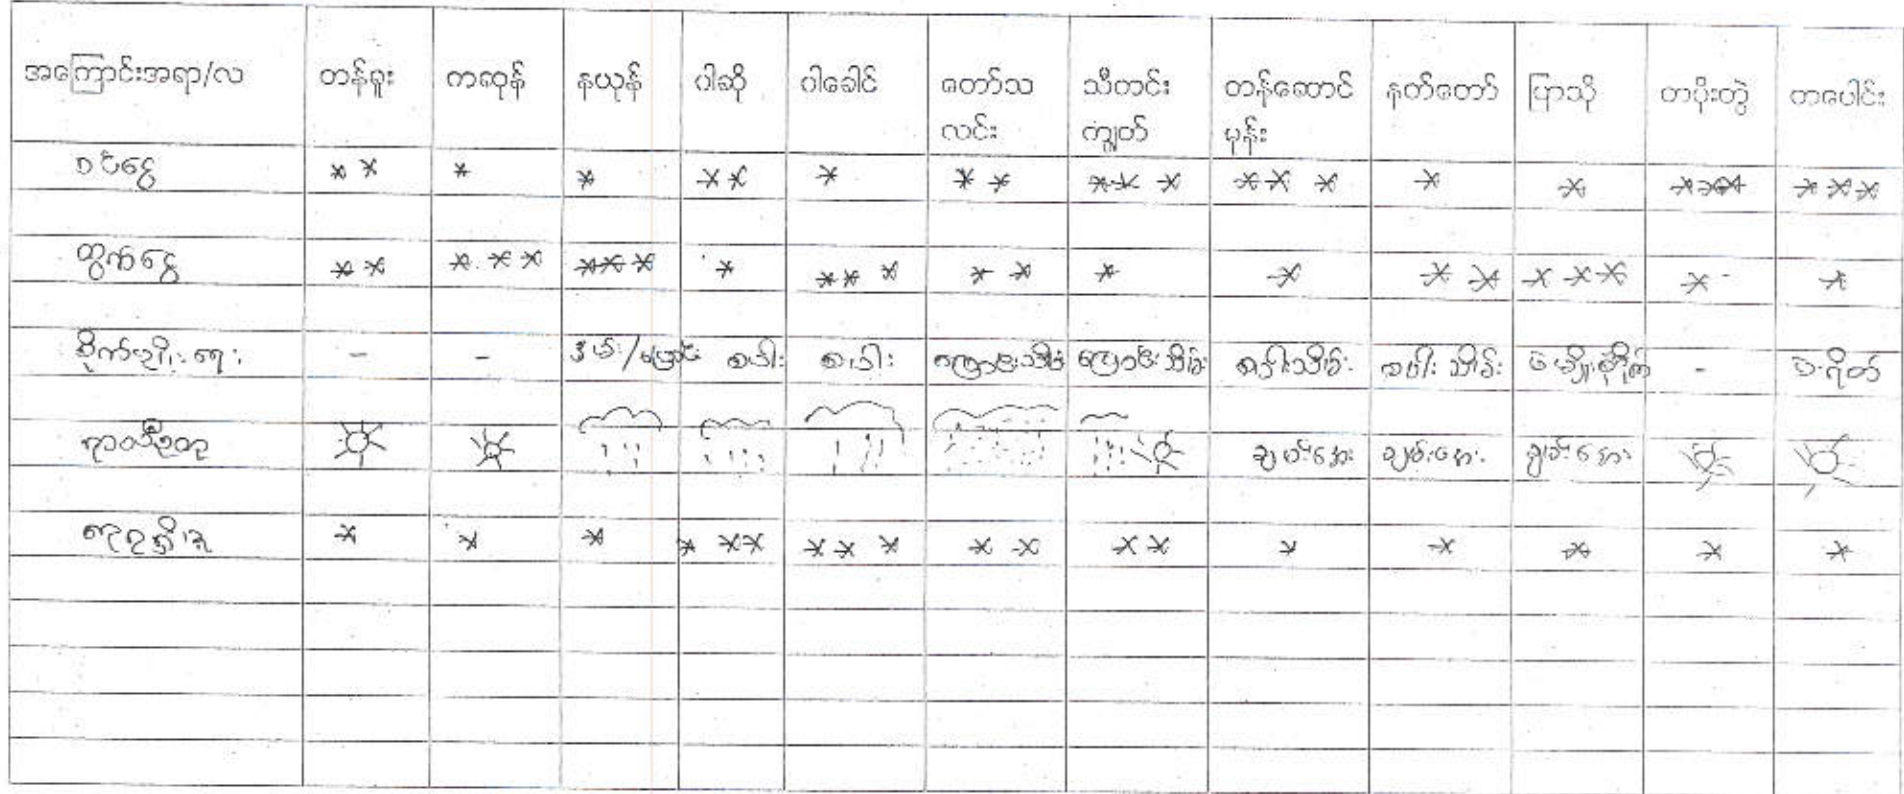 အကြောင်းအရာ/လ တန်ခူး ကဆုန် နယုန် ဝါဆို ဝါခေါင် တော်သလင်း သီတင်းကျွတ် တန်ဆောင်မုန်း နတ်တော် ပြာသို တပို့တွဲ တပေါင်း
ဝင်ငွေ ** * * ** * ** *** *** * * *** ***
ထွက်ငွေ ** *** *** * *** ** * * ** *** * *
စိုက်ပျိုးရေး - - နှမ်း/ပြောင်း စပါး စပါး ပြောင်းသိမ်း ပြောင်းသိမ်း စပါးသိမ်း စပါးသိမ်း ပဲမျိုးစုံစိုက် - ပဲရိတ်
ရာသီဥတု ချမ်းအေး ချမ်းအေး ချမ်းအေး
* * * *** *** ** ** * * * * *